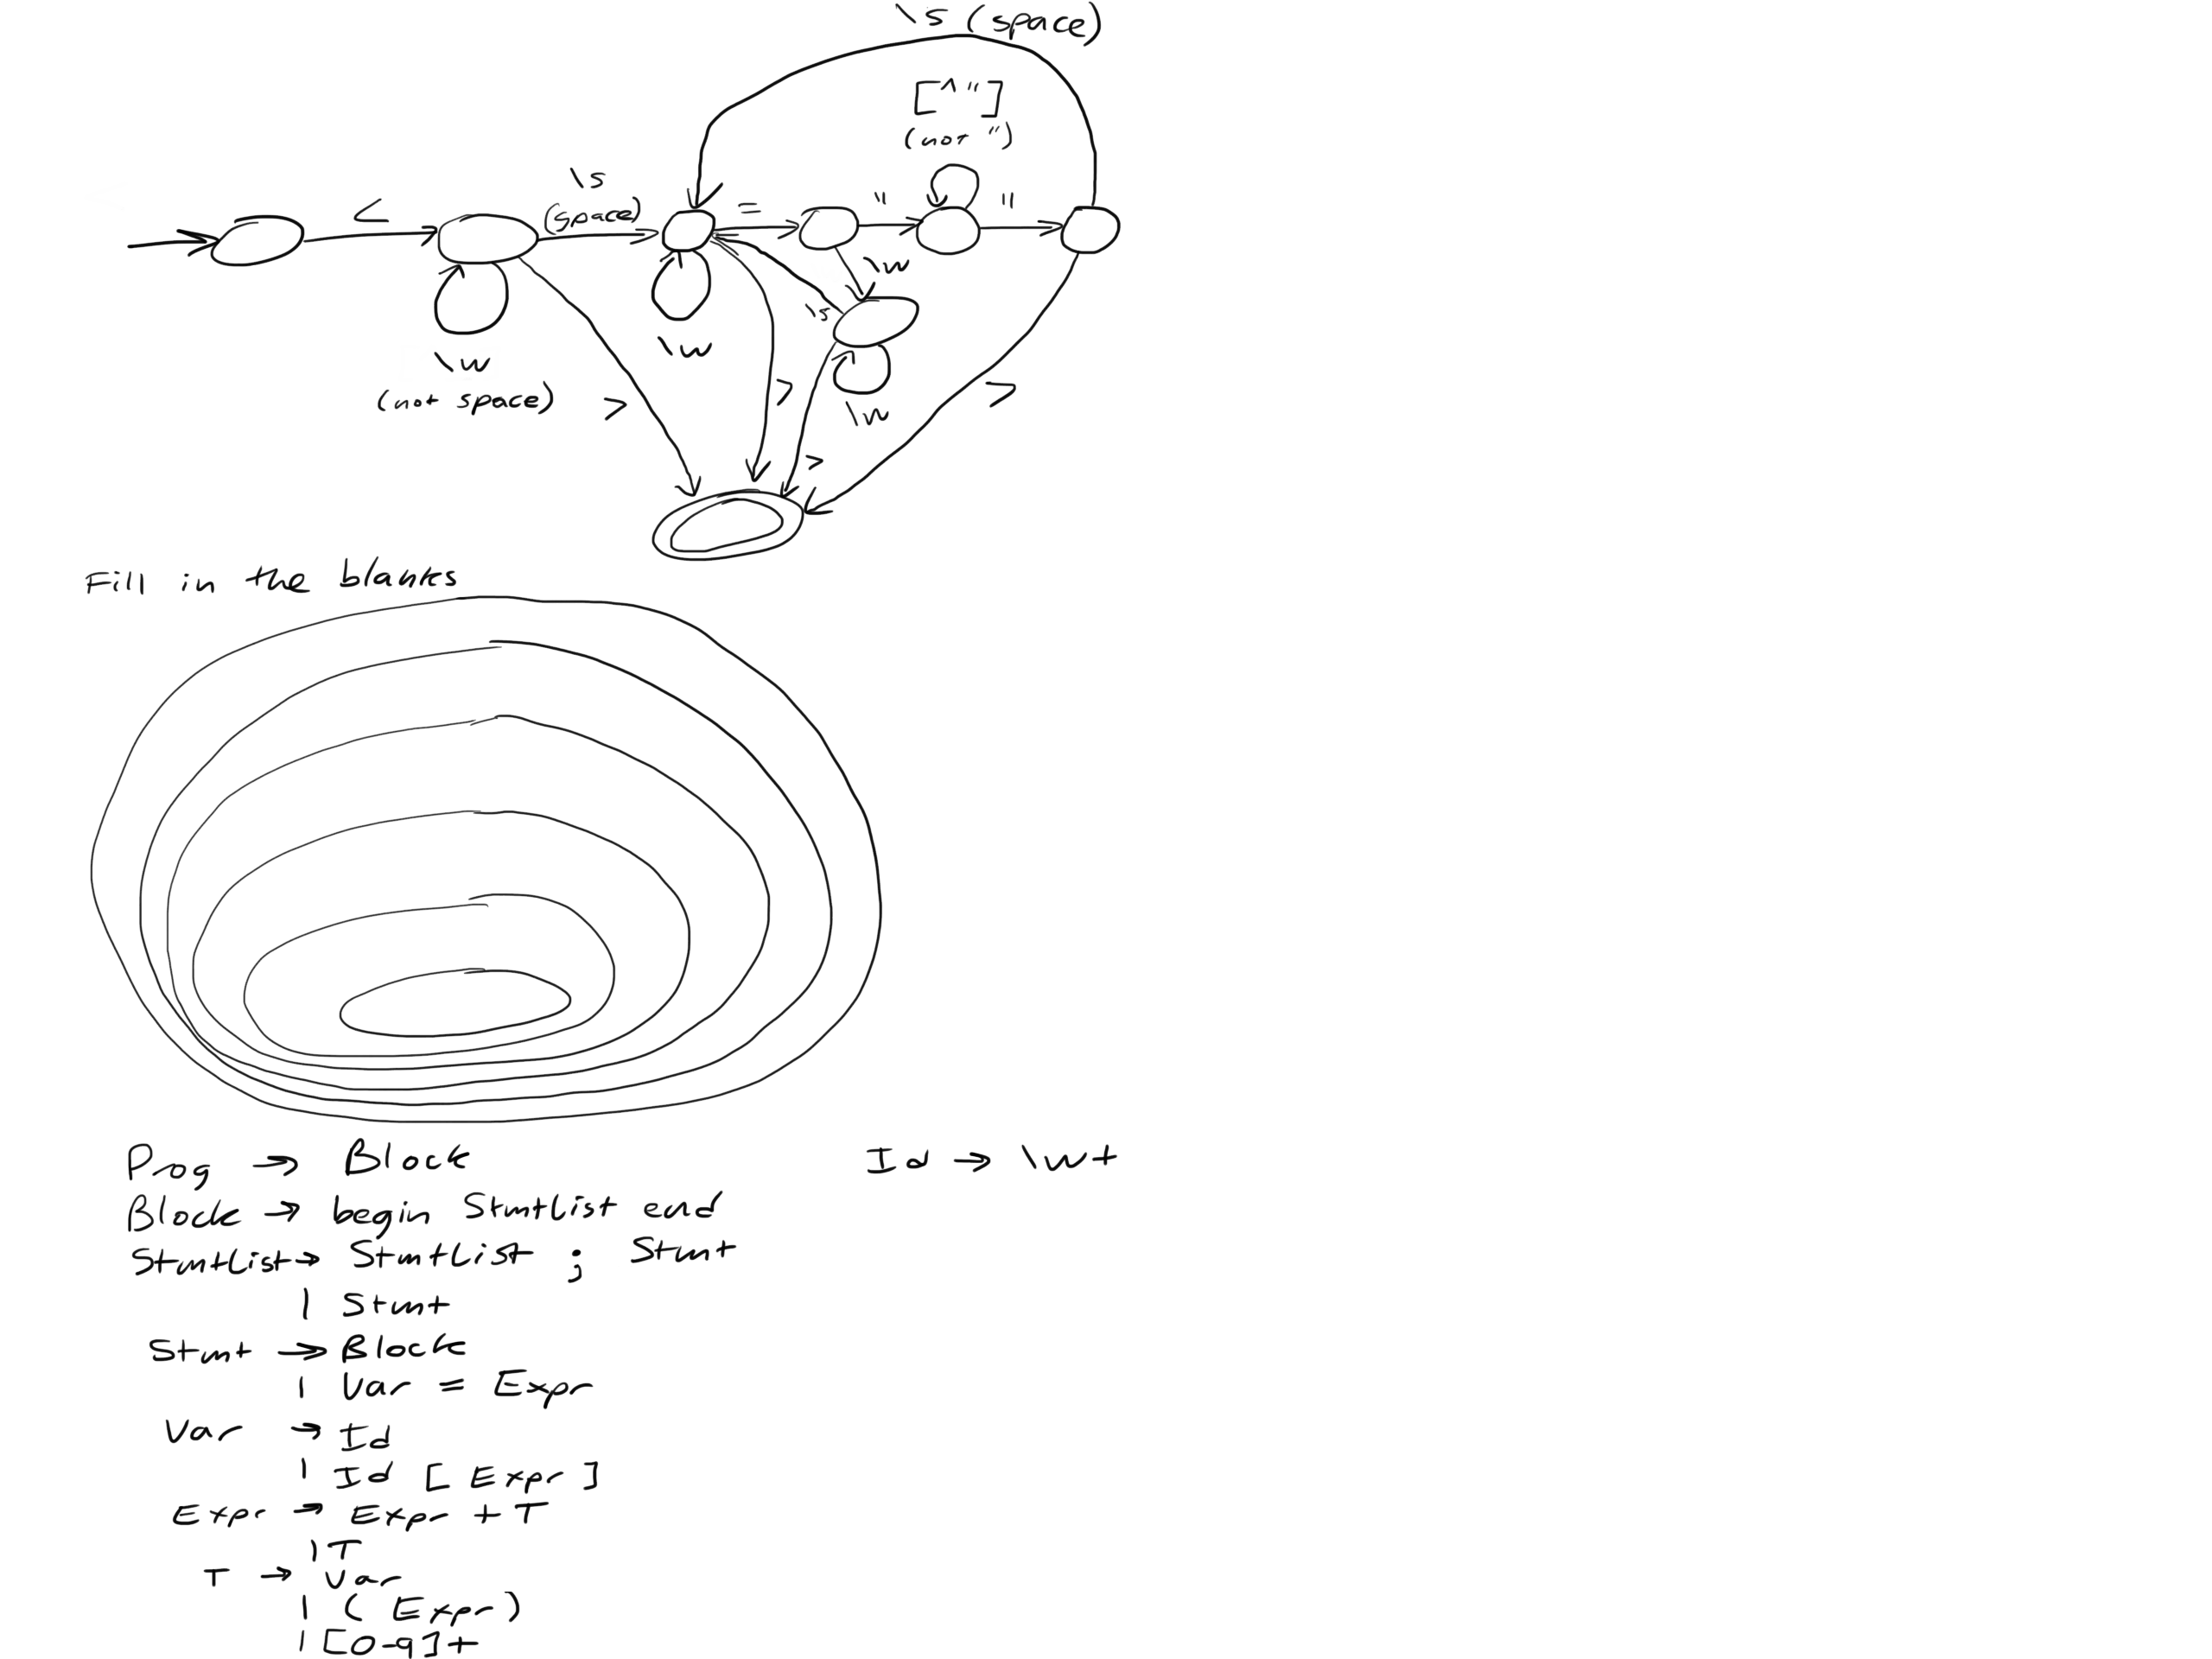 \s (space)
[^"]
(not ")
<
\s
(space)
=
"
"
\w
\s
\w
(not space)
>
\w
>
\w
>
>
Fill in the blanks
Prog → Block
Id → \w+
Block → begin StmtList end
StmtList → StmtList ; Stmt
| Stmt
Stmt → Block
| Var = Expr
Var → Id
| Id [ Expr ]
Expr → Expr + T
| T
T → Var
| ( Expr )
| [0-9]+